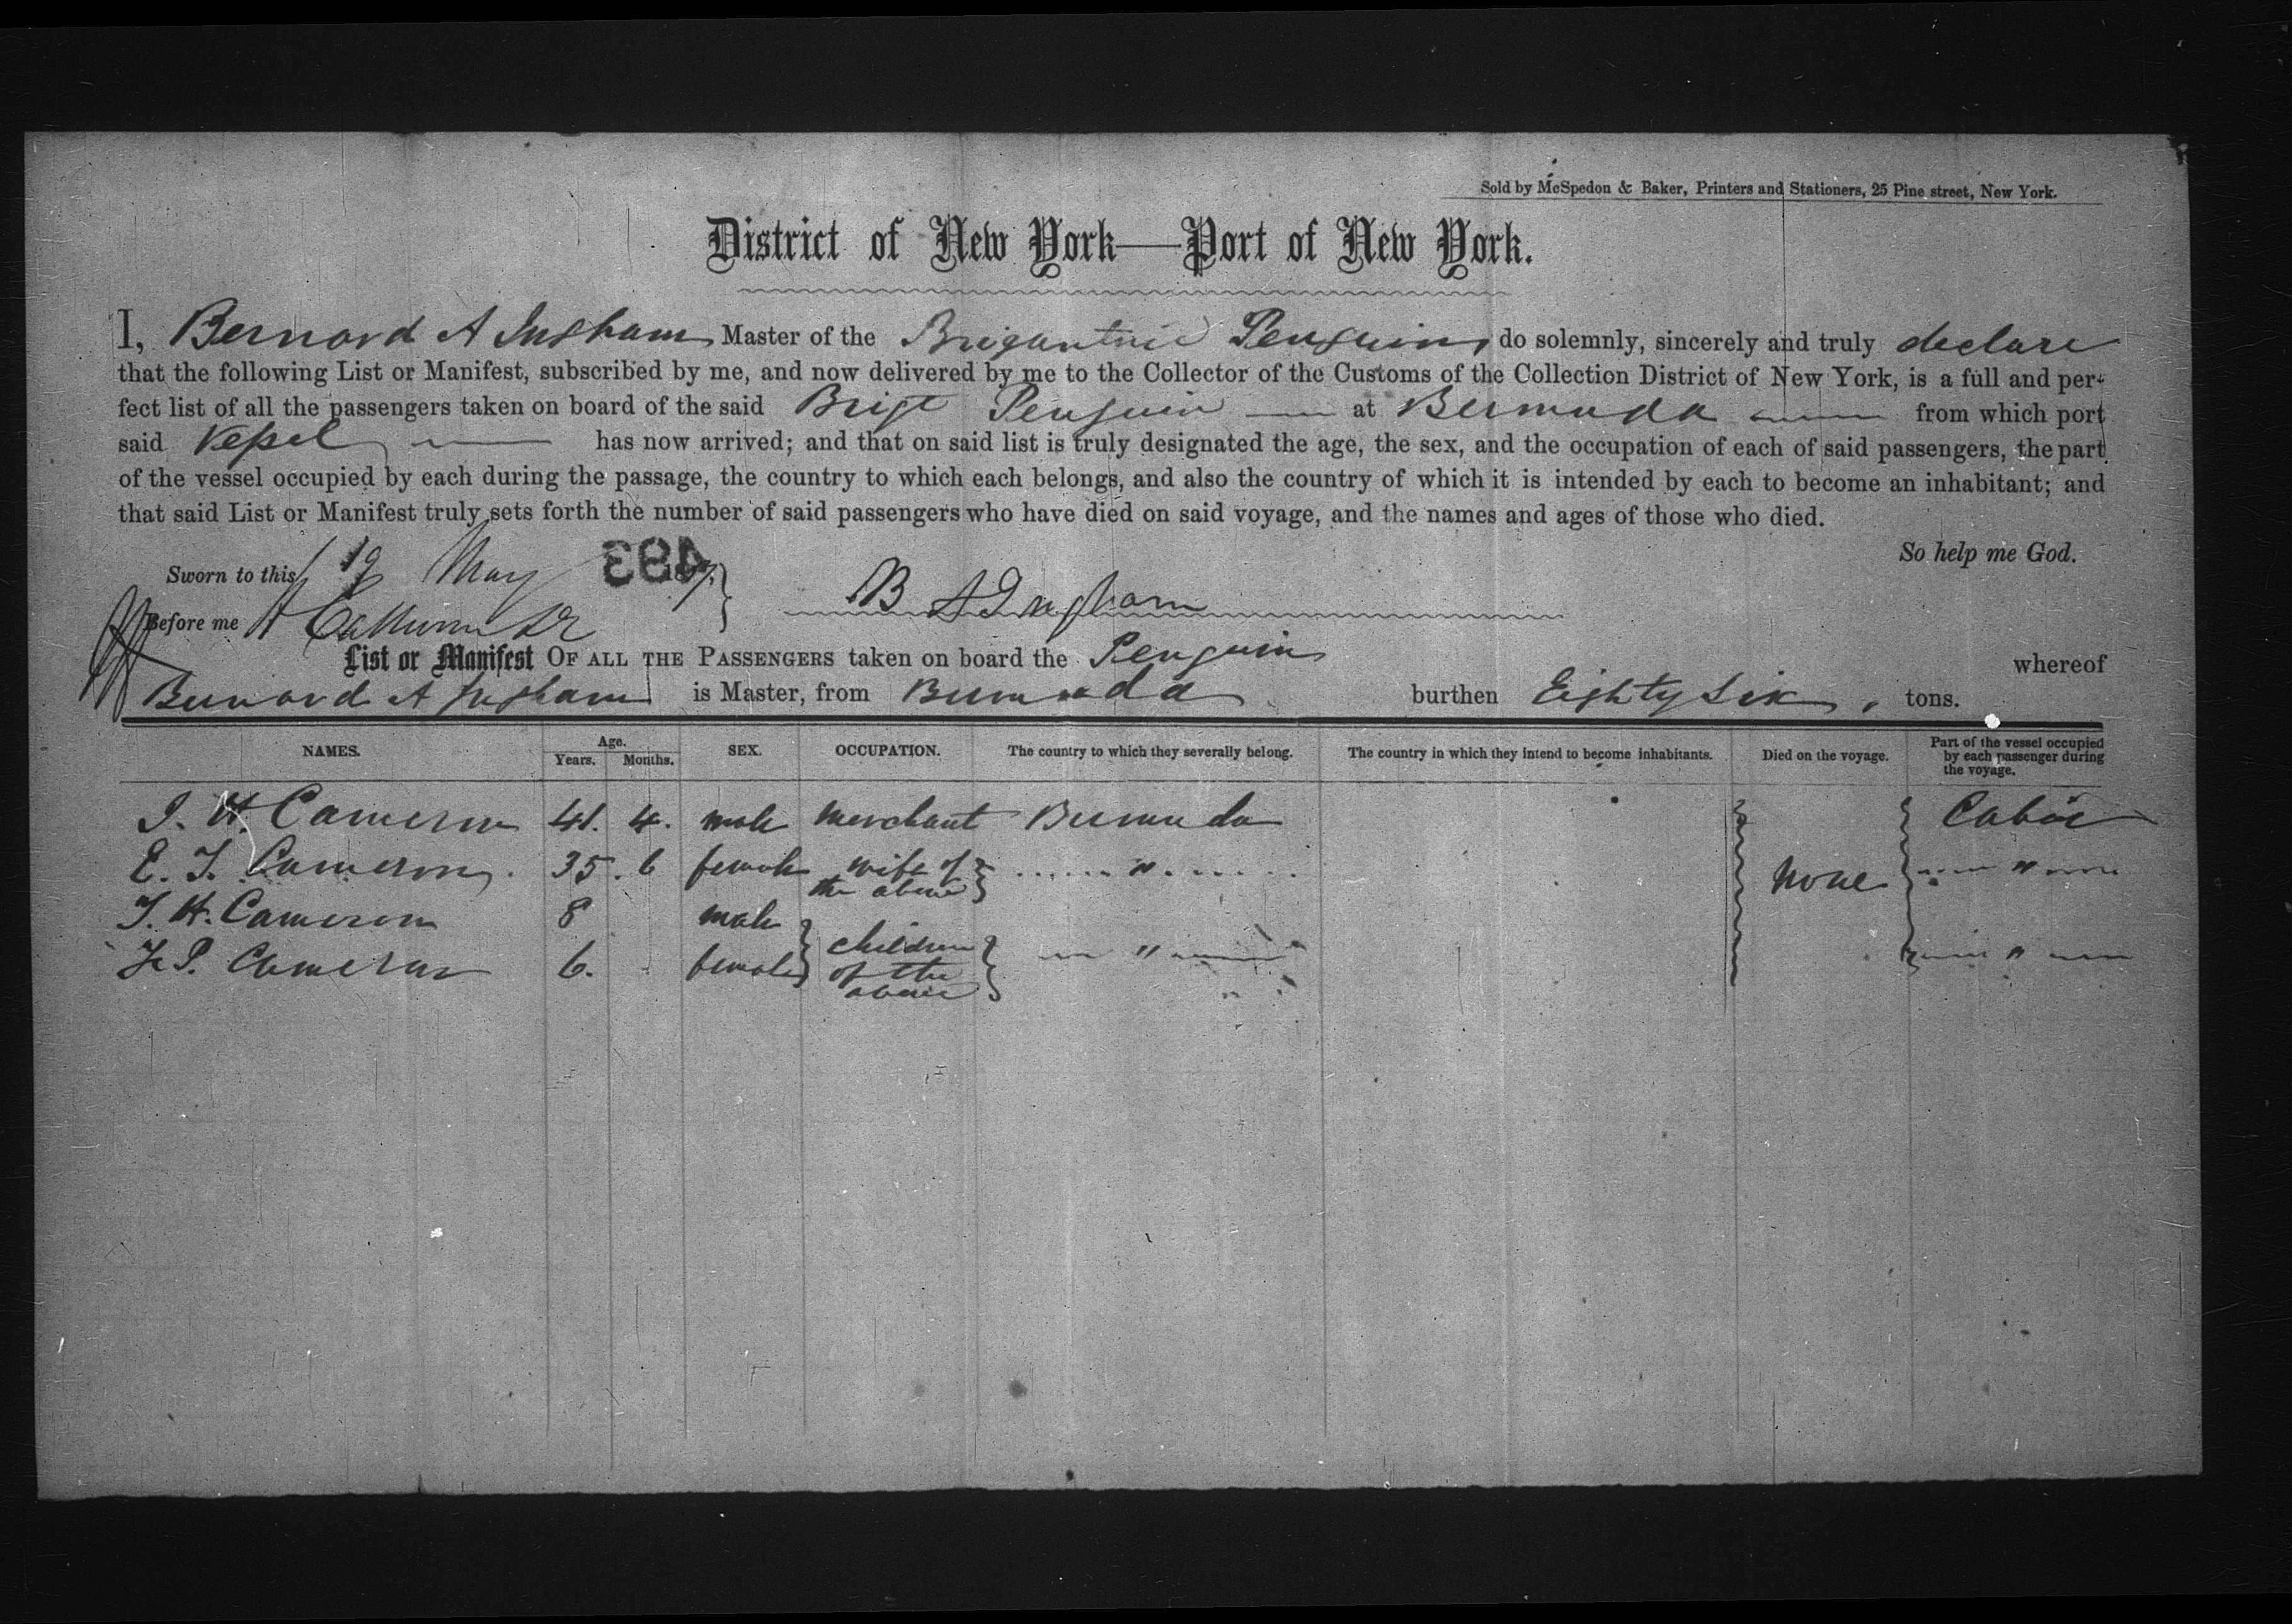 Sold by McSpedon & Baker, Printers and Stationers, 25 Pine street, New York.
District of New York—Port of New York.
I, Bernard A Ingham Master of the Brigantine Penguin do solemnly, sincerely and truly declare
that the following List or Manifest, subscribed by me, and now delivered by me to the Collector of the Customs of the Collection District of New York, is a full and per-
fect list of all the passengers taken on board of the said Brigt Penguin — at Bermuda — from which port
said Vessel — has now arrived; and that on said list is truly designated the age, the sex, and the occupation of each of said passengers, the part
of the vessel occupied by each during the passage, the country to which each belongs, and also the country of which it is intended by each to become an inhabitant; and
that said List or Manifest truly sets forth the number of said passengers who have died on said voyage, and the names and ages of those who died.
So help me God.
Sworn to this 19 May 493
B A Ingham
Before me
List or Manifest OF ALL THE PASSENGERS taken on board the Penguin whereof
Bernard A Ingham is Master, from Bermuda burthen Eighty Six tons.
NAMES. Age. Years. Months. SEX. OCCUPATION. The country to which they severally belong. The country in which they intend to become inhabitants. Died on the voyage. Part of the vessel occupied by each passenger during the voyage.
J. H. Cameron 41. 4. male merchant Bermuda Cabin
E. J. Cameron 35. 6 female wife of the above " None "
J. H. Cameron 8 male children of the above " "
Cameron 6. female